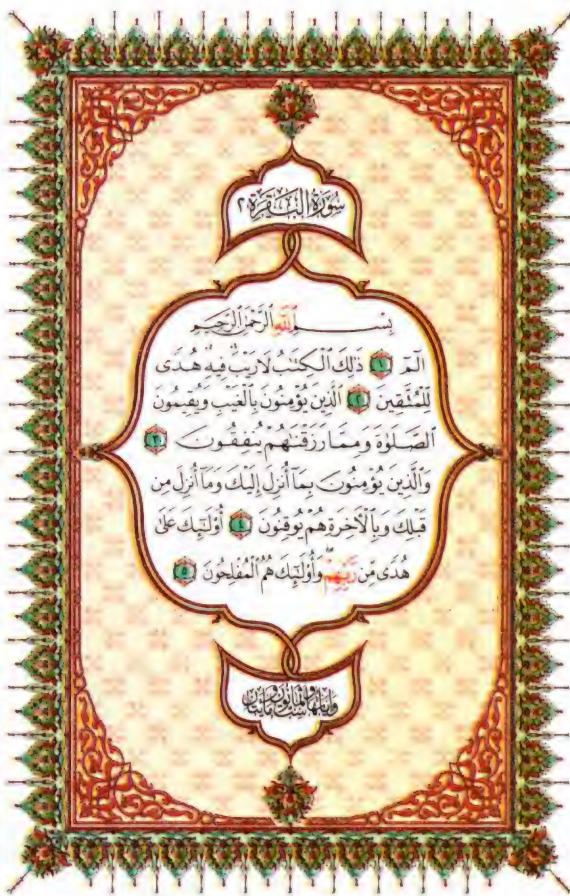 سُورَةُ الْبَقَرَةِ ٢
بِسْمِ ٱللَّهِ ٱلرَّحْمَٰنِ ٱلرَّحِيمِ
الٓمٓ ١ ذَٰلِكَ ٱلْكِتَٰبُ لَا رَيْبَ ۛ فِيهِ ۛ هُدًى
لِّلْمُتَّقِينَ ٢ ٱلَّذِينَ يُؤْمِنُونَ بِٱلْغَيْبِ وَيُقِيمُونَ
ٱلصَّلَوٰةَ وَمِمَّا رَزَقْنَٰهُمْ يُنفِقُونَ ٣
وَٱلَّذِينَ يُؤْمِنُونَ بِمَآ أُنزِلَ إِلَيْكَ وَمَآ أُنزِلَ مِن
قَبْلِكَ وَبِٱلْأَخِرَةِ هُمْ يُوقِنُونَ ٤ أُو۟لَٰٓئِكَ عَلَىٰ
هُدًى مِّن رَّبِّهِمْ ۖ وَأُو۟لَٰٓئِكَ هُمُ ٱلْمُفْلِحُونَ ٥
وآياتها ست وثمانون ومايتان